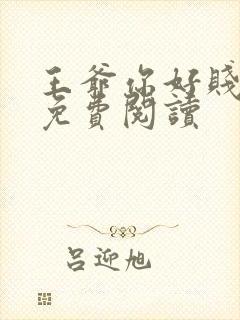 王爺你好賤
免費閱讀
呂迎旭